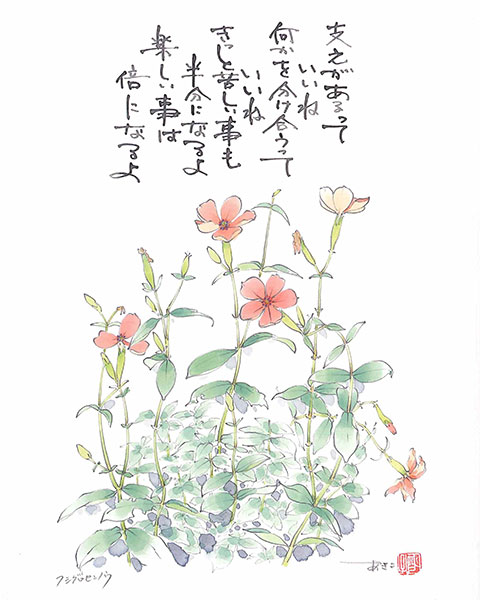 支えがあるって
いいね
何かを分け合うって
いいね
きっと苦しい事も
半分になるよ
楽しい事は
倍になるよ
フシグロセンノウ